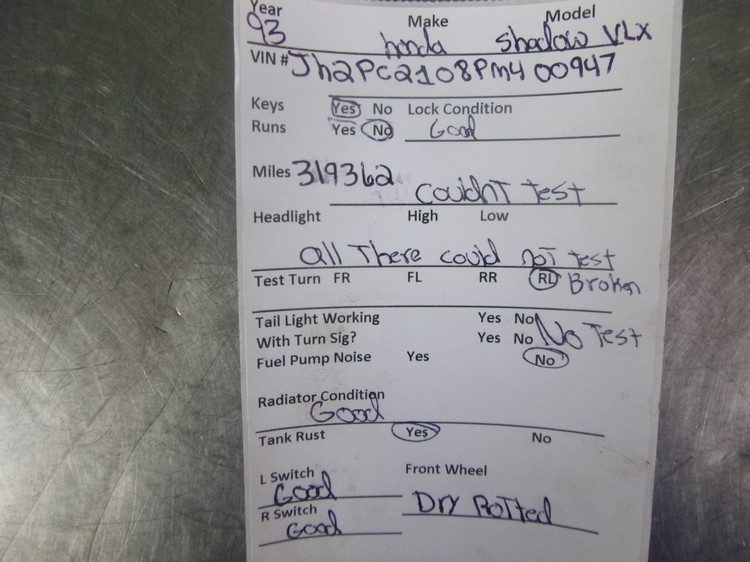 Year Make Model
93 honda Shadow VLX
VIN # Jh2PC2108PM400947
Keys Yes No Lock Condition
Runs Yes No Good
Miles 319362 Couldn't test
Headlight High Low
All There could not test
Test Turn FR FL RR RL Broken
Tail Light Working Yes No
With Turn Sig? Yes No No Test
Fuel Pump Noise Yes No
Radiator Condition
Good
Tank Rust Yes No
L Switch Front Wheel
Good
R Switch Dry Rotted
Good